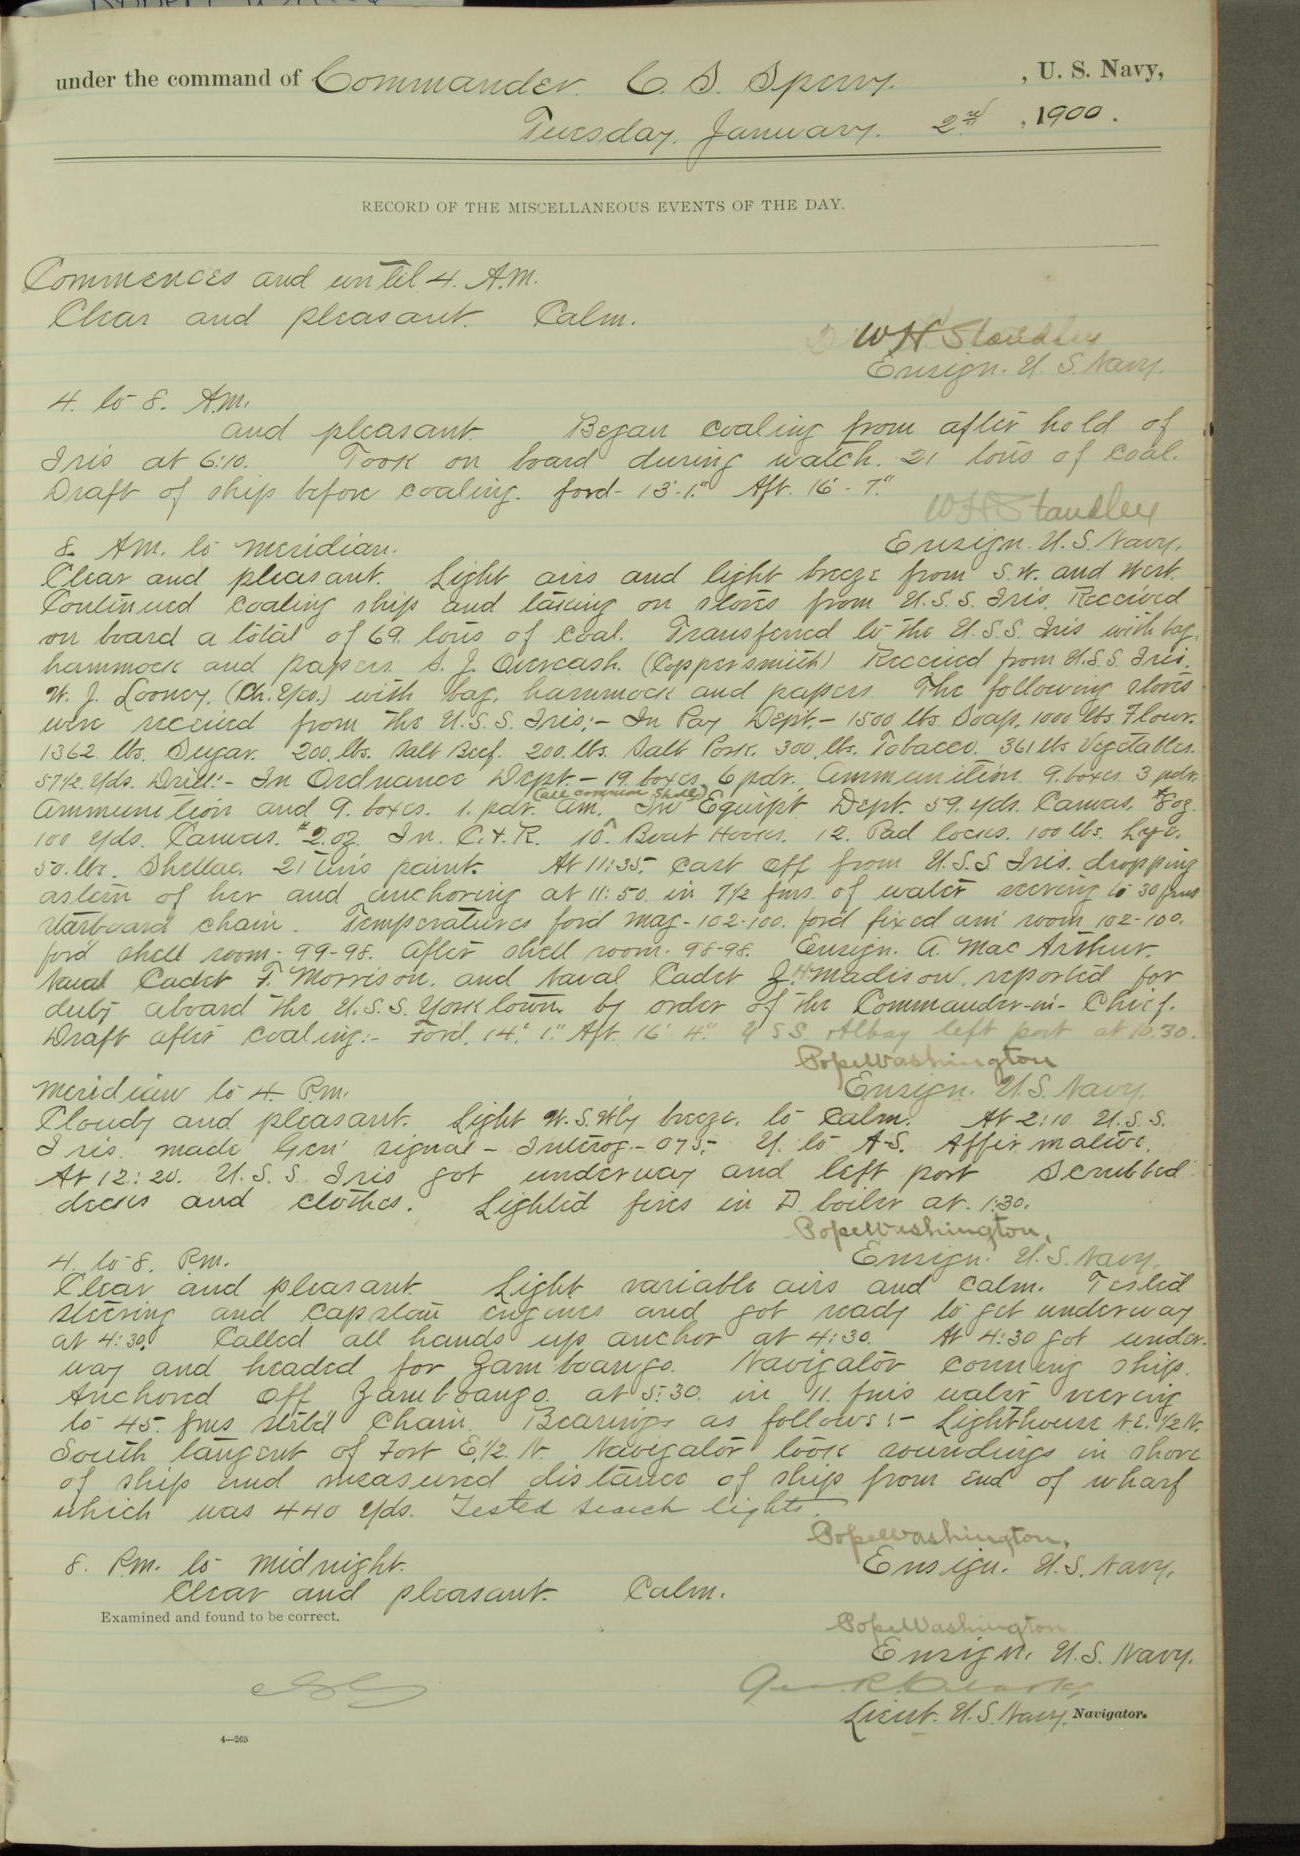 under the command of Commander C. S. Sperry. , U. S. Navy,
Tuesday. January. 2nd , 1900.
RECORD OF THE MISCELLANEOUS EVENTS OF THE DAY.
Commences and until 4. A.M.
Clear and pleasant. Calm.
W H Standley
Ensign. U. S. Navy.
4. to 8. A.M.
and pleasant. Began coaling from after hold of
Iris at 6:10. Took on board during watch. 21 tons of coal.
Draft of ship before coaling. ford- 13'-1." Aft. 16'-7."
W H Standley
Ensign. U. S. Navy.
8 A.M. to meridian.
Clear and pleasant. Light airs and light breeze from S.W. and West.
Continued coaling ship and taking on stores from U.S.S. Iris. Received
on board a total of 69. tons of coal. Transferred to the U.S.S. Iris with bag,
hammock and papers S. J. Overcash. (Coppersmith) Received from U.S.S. Iris.
W. J. Looney. (Ch. Yeo.) with bag, hammock and papers. The following stores
were received from the U.S.S. Iris:- In Pay Dept.- 1500 lbs. Soap. 1000 lbs. Flour.
1362 lbs. Sugar. 200 lbs. Salt Beef. 200 lbs. Salt Pork. 300 lbs. Tobacco. 361 lbs Vegetables.
57 1/2 Yds. Drill:- In Ordnance Dept.- 19 boxes 6 pdr. Ammunition 9. boxes 3 pdr.
Ammunition and 9. boxes. 1. pdr. am. (all common shell) In Equipt. Dept. 59. yds. Canvas. #8 oz.
100 yds. Canvas. #2. oz. In. C. & R. 10 Boat Hooks. 12. Pad locks. 100 lbs. Lye.
50. lbs. Shellac. 21 tins paint. At 11:35. cast off from U.S.S Iris. dropping
astern of her and anchoring at 11:50. in 7 1/2 fms. of water veering to 30 fms
starboard chain. Temperatures ford mag- 102-100. ford fixed am' room 102-100.
ford shell room- 99-98. After shell room- 98-98. Ensign. A. Mac Arthur.
Naval Cadet F. Morrison. and Naval Cadet Z. H. Madison. reported for
duty aboard the U.S.S. Yorktown by order of the Commander-in-Chief.
Draft after coaling:- Ford. 14' 1." Aft. 16' 4." U S S. Albay left port at 10.30.
Pope Washington
Ensign. U. S. Navy.
Meridian to 4 P.M.
Cloudy and pleasant. Light W.S.W'ly breeze. to calm. At 2:10 U.S.S.
Iris. made Gen' signal - Interog.- 075.- U. to A-S. Affirmative.
At 12:20. U.S.S. Iris got underway and left port Scrubbed
decks and clothes. Lighted fires in D. boiler at. 1:30.
Pope Washington.
Ensign. U. S. Navy.
4. to 8. P.M.
Clear and pleasant Light variable airs and calm. Tested
steering and capstan engines and got ready to get underway
at 4:30. Called all hands up anchor at 4:30. At 4:30 got under-
way and headed for Zamboango. Navigator conning ship.
Anchored off Zamboango. at 5:30. in 11. fms water veering
to 45. fms strb'd chain. Bearings as follows:- Lighthouse N.E. 1/2 N.
South tangent of Fort E. 1/2. N. Navigator took soundings in shore
of ship and measured distance of ship from end of wharf
which was 440 yds. Tested search lights.
Pope Washington.
8. P.M. to midnight.
Ensign. U. S. Navy.
Clear and pleasant. Calm.
Examined and found to be correct.
Pope Washington
Ensign. U.S. Navy.
Lieut. U. S. Navy, Navigator.
4—265